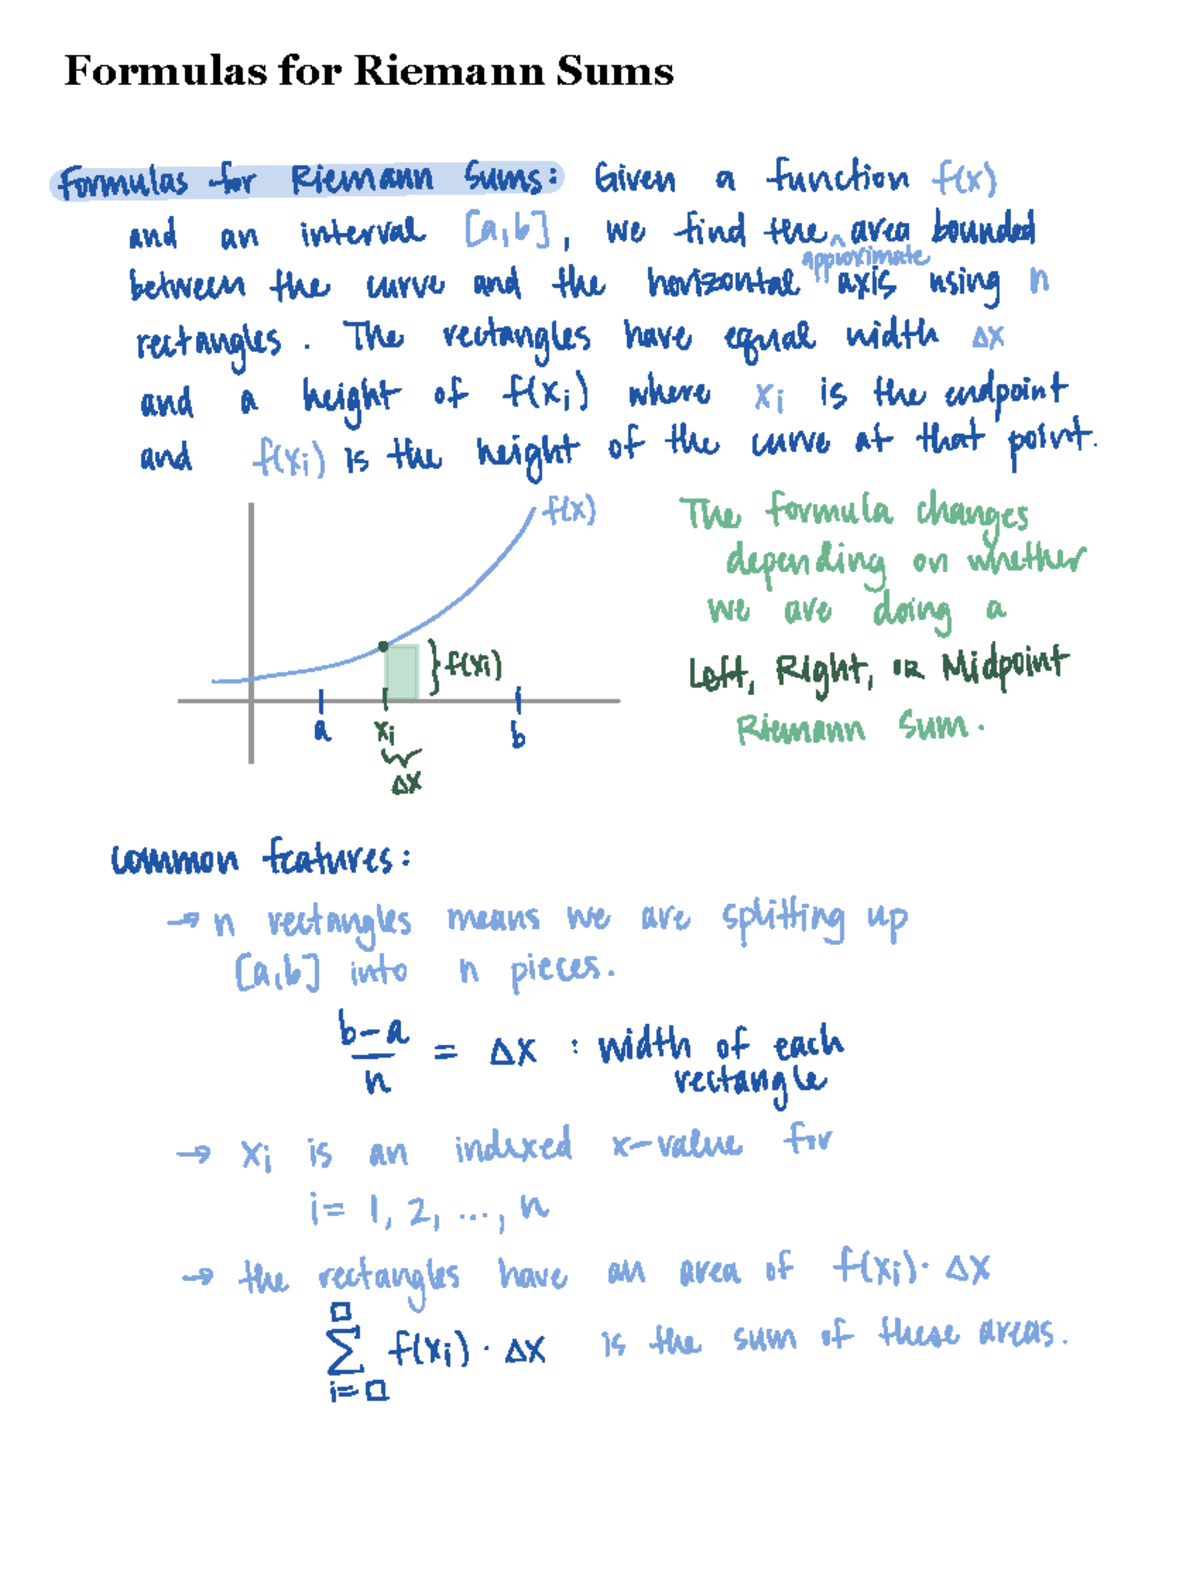 Formulas for Riemann Sums
Formulas for Riemann Sums: Given a function f(x)
and an interval [a,b], we find the ^ area bounded
approximate
between the curve and the horizontal axis using n
rectangles. The rectangles have equal width Δx
and a height of f(xi) where xi is the endpoint
and f(xi) is the height of the curve at that point.
f(x)
}f(xi)
a
xi
b
Δx
The formula changes
depending on whether
we are doing a
Left, Right, or Midpoint
Riemann Sum.
Common features:
→ n rectangles means we are splitting up
[a,b] into n pieces.
b-a
n
= Δx : width of each
rectangle
→ xi is an indexed x-value for
i = 1, 2, ..., n
→ the rectangles have an area of f(xi)· Δx
□
∑ f(xi) · Δx is the sum of these areas.
i=□